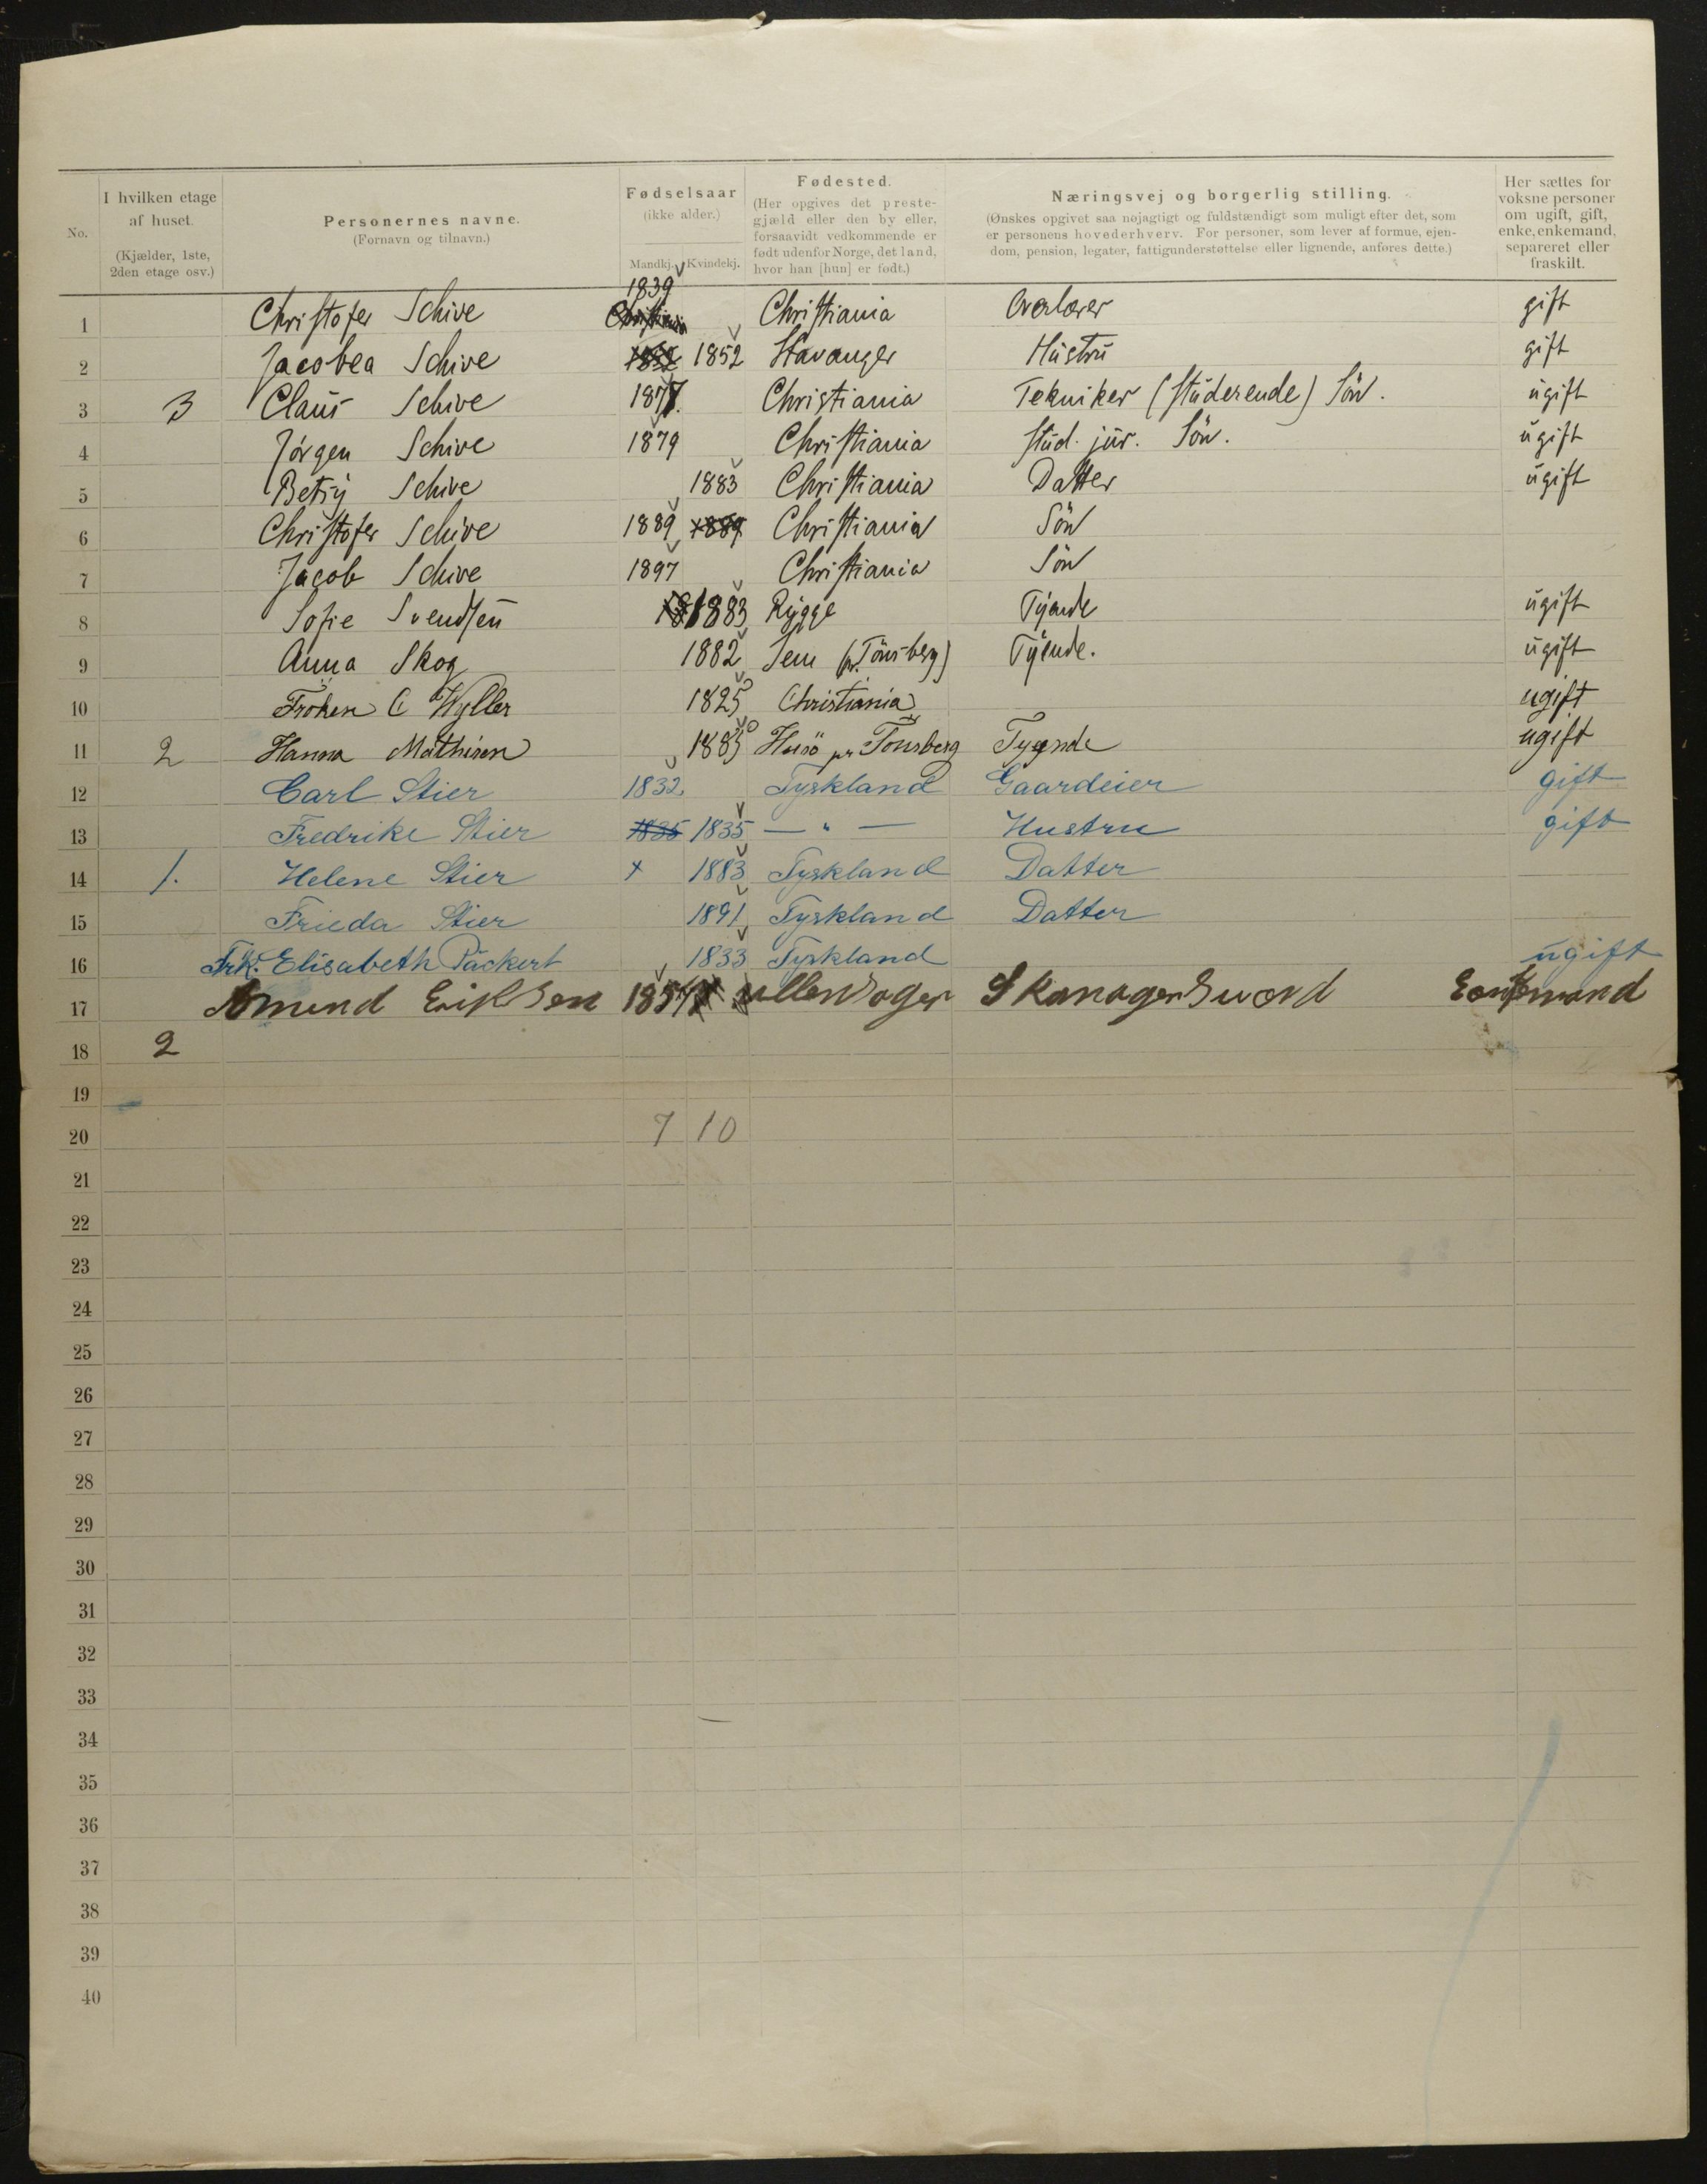 No.
I hvilken etage af huset. (Kjælder, 1ste, 2den etage osv.)
Personernes navne. (Fornavn og tilnavn.)
Fødselsaar (ikke alder.) Mandkj. Kvindekj.
Fødested. (Her opgives det prestegjæld eller den by eller, forsaavidt vedkommende er født udenfor Norge, det land, hvor han [hun] er født.)
Næringsvej og borgerlig stilling. (Ønskes opgivet saa nøjagtigt og fuldstændigt som muligt efter det, som er personens hovederhverv. For personer, som lever af formue, ejendom, pension, legater, fattigunderstøttelse eller lignende, anføres dette.)
Her sættes for voksne personer om ugift, gift, enke, enkemand, separeret eller fraskilt.
1 Christofer Schive 1839 Christiania Christiania Overlærer gift
2 Jacobea Schive 1852 1852 Stavanger Hustru gift
3 3 Claus Schive 1877. Christiania Tekniker (studerende) Sön. ugift
4 Jörgen Schive 1879 Christiania stud. jur. Sön. ugift
5 Betsy Schive 1883 Christiania Datter ugift
6 Christofer Schive 1889 1889 Christiania Sön
7 Jacob Schive 1897 Christiania Sön
8 Sofie Svendsen 18 1883 Rygge Tyende ugift
9 Anna Skog 1882 Sem (pr. Tönsberg) Tyende. ugift
10 Fröken C Wyller 1825 Christiania ugift
11 2 Hanna Mathisen 1885 Husö pr Tonsberg Tyende ugift
12 Carl Stier 1832. Tyskland Gaardeier gift
13 Fredrike Stier 1835 1835 — " — Hustru gift
14 1. Helene Stier x 1883 Tyskland Datter
15 Frieda Stier 1891 Tyskland Datter
16 Frk. Elisabeth Päckert 1833 Tyskland ugift
17 Amund Eriksen 1854 ullensoger
18 2
19
20 7 10
21
22
23
24
25
26
27
28
29
30
31
32
33
34
35
36
37
38
39
40